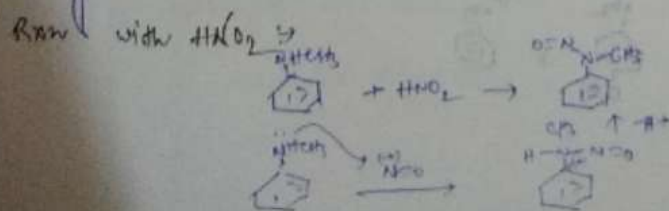 Rxn with HNO2 ⇒
NHCH3 + HNO2 → O=N N-CH3
CH3 ↑ -H+
NHCH3 (+) N=O → H-N-N=O